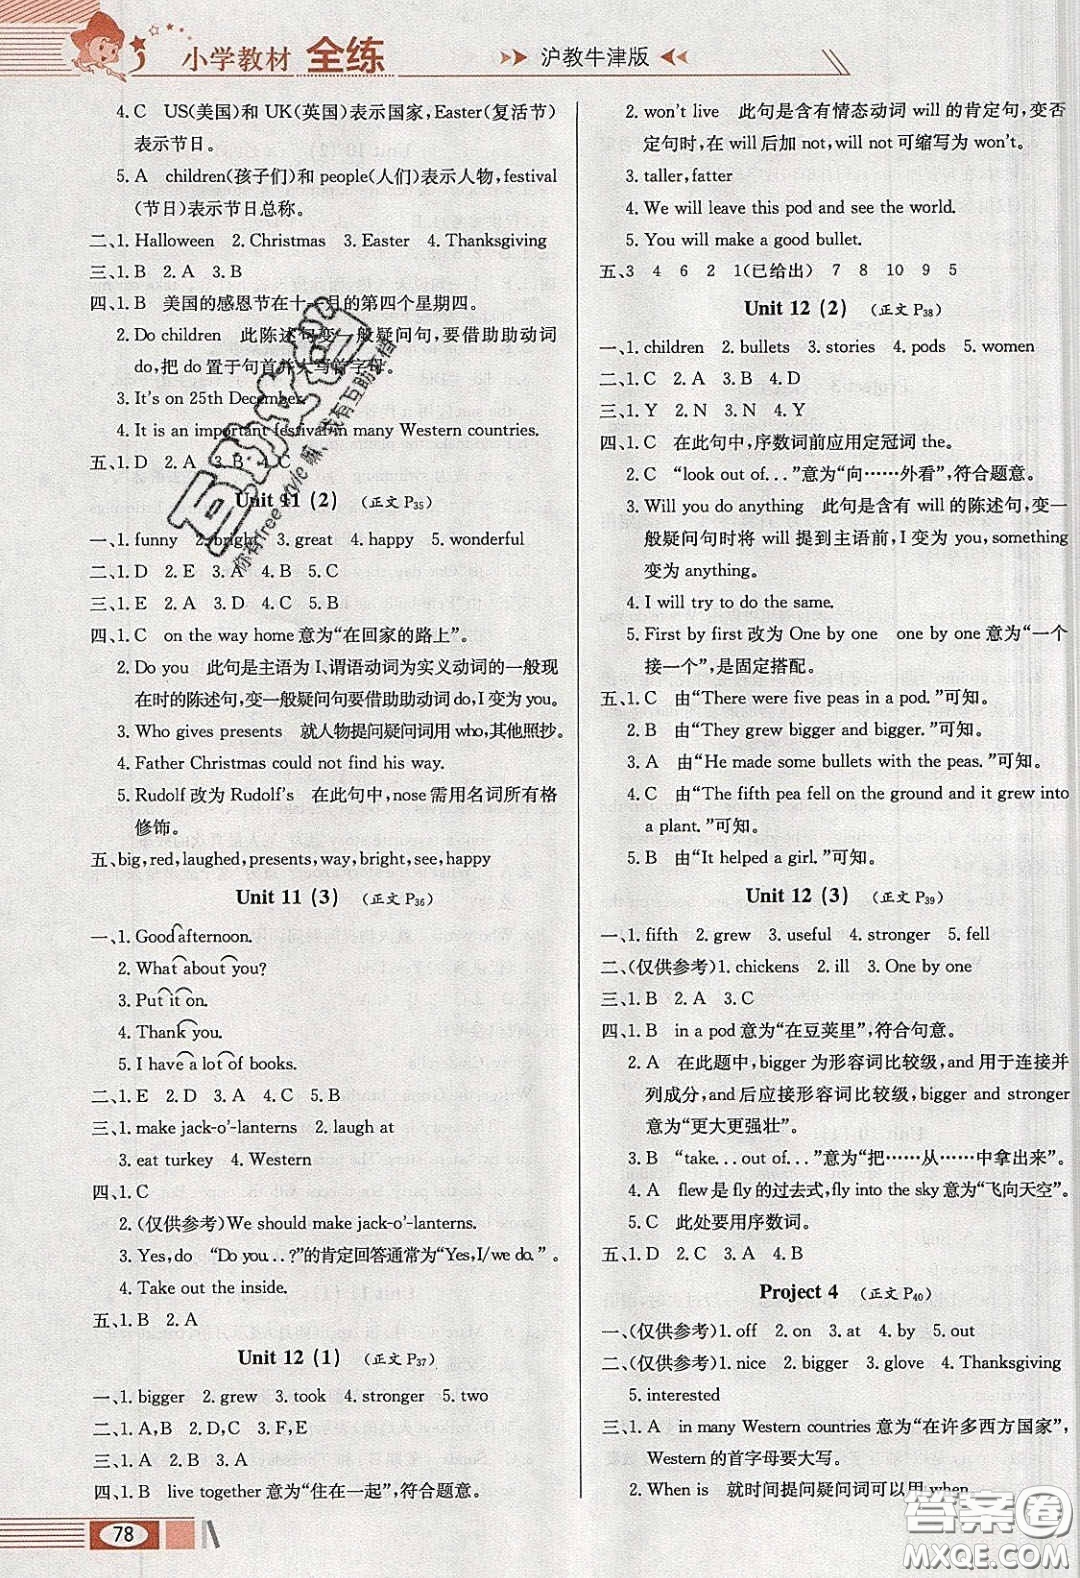 小学教材 全练
沪教牛津版
4. C US(美国)和 UK(英国)表示国家,Easter(复活节)
表示节日。
5. A children(孩子们)和 people(人们)表示人物, festival
(节日)表示节日总称。
二、1. Halloween 2. Christmas 3. Easter 4. Thanksgiving
三、1. B 2. A 3. B
四、1. B 美国的感恩节在十一月的第四个星期四。
2. Do children 此陈述句变一般疑问句,要借助助动词
do,把 do 置于句首并大写首字母。
3. It's on 25th December.
4. It is an important festival in many Western countries.
五、1. D 2. A 3. B 4. C
Unit 11 (2) (正文 P35)
一、1. funny 2. bright 3. great 4. happy 5. wonderful
二、1. D 2. E 3. A 4. B 5. C
三、1. E 2. A 3. D 4. C 5. B
四、1. C on the way home 意为“在回家的路上”。
2. Do you 此句是主语为 I,谓语动词为实义动词的一般现
在时的陈述句,变一般疑问句要借助助动词 do,I 变为 you。
3. Who gives presents 就人物提问疑问词用 who,其他照抄。
4. Father Christmas could not find his way.
5. Rudolf 改为 Rudolf's 在此句中, nose 需用名词所有格
修饰。
五、big, red, laughed, presents, way, bright, see, happy
Unit 11 (3) (正文 P36)
一、1. Good afternoon.
2. What about you?
3. Put it on.
4. Thank you.
5. I have a lot of books.
二、1. E 2. D 3. A 4. C 5. B
三、1. make jack-o'-lanterns 2. laugh at
3. eat turkey 4. Western
四、1. C
2. (仅供参考)We should make jack-o'-lanterns.
3. Yes, do “Do you. . . ?”的肯定回答通常为“Yes, I/we do.”。
4. Take out the inside.
五、1. B 2. A
Unit 12 (1) (正文 P37)
一、1. bigger 2. grew 3. took 4. stronger 5. two
二、1. A, B 2. C, D 3. F, E
三、1. A 2. B 3. B 4. A 5. A
四、1. B live together 意为“住在一起”,符合题意。
2. won't live 此句是含有情态动词 will 的肯定句,变否
定句时,在 will 后加 not, will not 可缩写为 won't。
3. taller, fatter
4. We will leave this pod and see the world.
5. You will make a good bullet.
五、3 4 6 2 1(已给出) 7 8 10 9 5
Unit 12 (2) (正文 P38)
一、1. children 2. bullets 3. stories 4. pods 5. women
二、1. C 2. A 3. B 4. D
三、1. Y 2. N 3. N 4. Y
四、1. C 在此句中,序数词前应用定冠词 the。
2. C “look out of. . . ”意为“向……外看”,符合题意。
3. Will you do anything 此句是含有 will 的陈述句,变一
般疑问句时将 will 提到主语前,I 变为 you, something
变为 anything。
4. I will try to do the same.
5. First by first 改为 One by one one by one 意为“一个
接一个”,是固定搭配。
五、1. C 由“There were five peas in a pod. ”可知。
2. B 由“They grew bigger and bigger. ”可知。
3. A 由“He made some bullets with the peas. ”可知。
4. C 由“The fifth pea fell on the ground and it grew into
a plant. ”可知。
5. B 由“It helped a girl. ”可知。
Unit 12 (3) (正文 P39)
一、1. fifth 2. grew 3. useful 4. stronger 5. fell
二、(仅供参考)1. chickens 2. ill 3. One by one
三、1. B 2. A 3. C
四、1. B in a pod 意为“在豆荚里”,符合句意。
2. A 在此题中, bigger 为形容词比较级, and 用于连接并
列成分, and 后应接形容词比较级, bigger and stronger
意为“更大更强壮”。
3. B “take. . . out of. . . ”意为“把……从……中拿出来”。
4. A flew 是 fly 的过去式, fly into the sky 意为“飞向天空”。
5. C 此处要用序数词。
五、1. D 2. C 3. A 4. B
Project 4 (正文 P40)
一、(仅供参考)1. off 2. on 3. at 4. by 5. out
二、(仅供参考)1. nice 2. bigger 3. glove 4. Thanksgiving
5. interested
三、1. A in many Western countries 意为“在许多西方国家”,
Western 的首字母要大写。
2. When is 就时间提问疑问词可以用 when。
78
答案圈
MXQE.COM